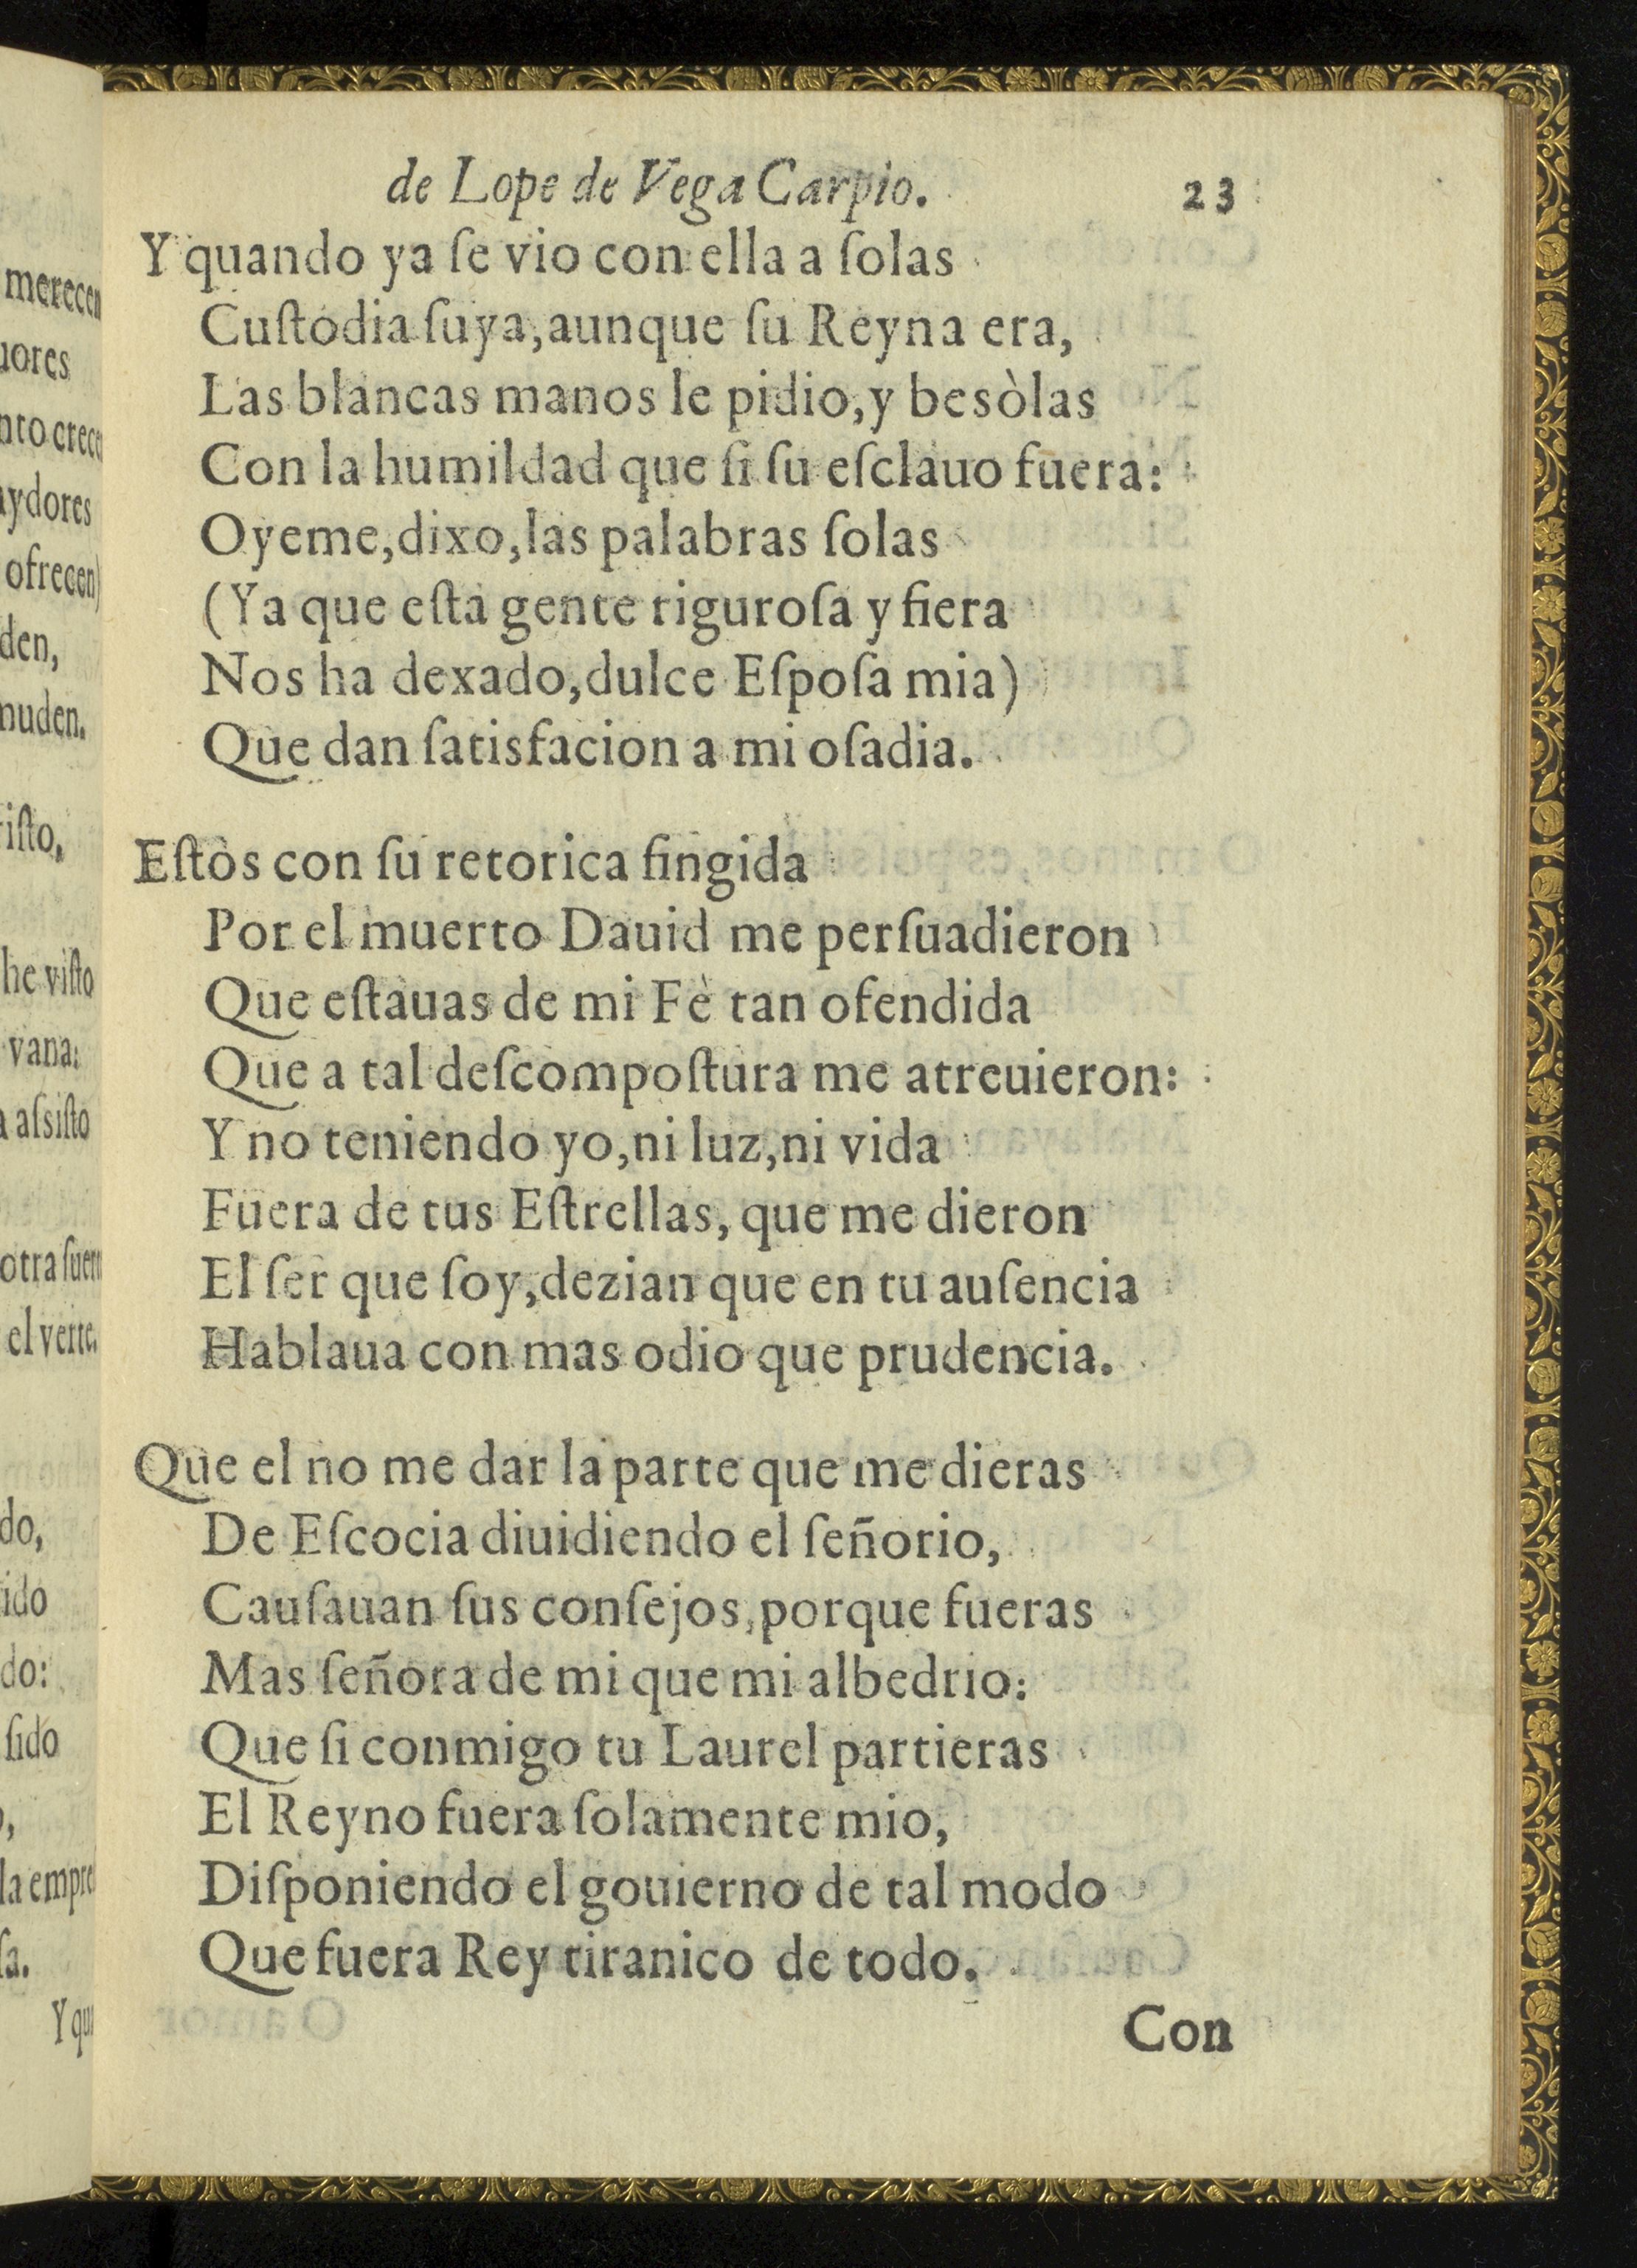 de Lope de Vega Carpio. 23
Y quando ya ſe vio con ella a ſolas
Cuſtodia ſuya, aunque ſu Reyna era,
Las blancas manos le pidio, y besòlas
Con la humildad que ſi ſu eſclauo fuera:
Oyeme, dixo, las palabras ſolas
(Ya que eſta gente riguroſa y fiera
Nos ha dexado, dulce Eſpoſa mia)
Que dan ſatisfacion a mi oſadia.
Eſtos con ſu retorica fingida
Por el muerto Dauid me perſuadieron
Que eſtauas de mi Fè tan ofendida
Que a tal deſcompoſtura me atreuieron:
Y no teniendo yo, ni luz, ni vida
Fuera de tus Eſtrellas, que me dieron
El ſer que ſoy, dezian que en tu auſencia
Hablaua con mas odio que prudencia.
Que el no me dar la parte que me dieras
De Eſcocia diuidiendo el ſeñorio,
Cauſauan ſus conſejos, porque fueras
Mas ſeñora de mi que mi albedrio:
Que ſi conmigo tu Laurel partieras
El Reyno fuera ſolamente mio,
Diſponiendo el gouierno de tal modo
Que fuera Rey tiranico de todo.
Con